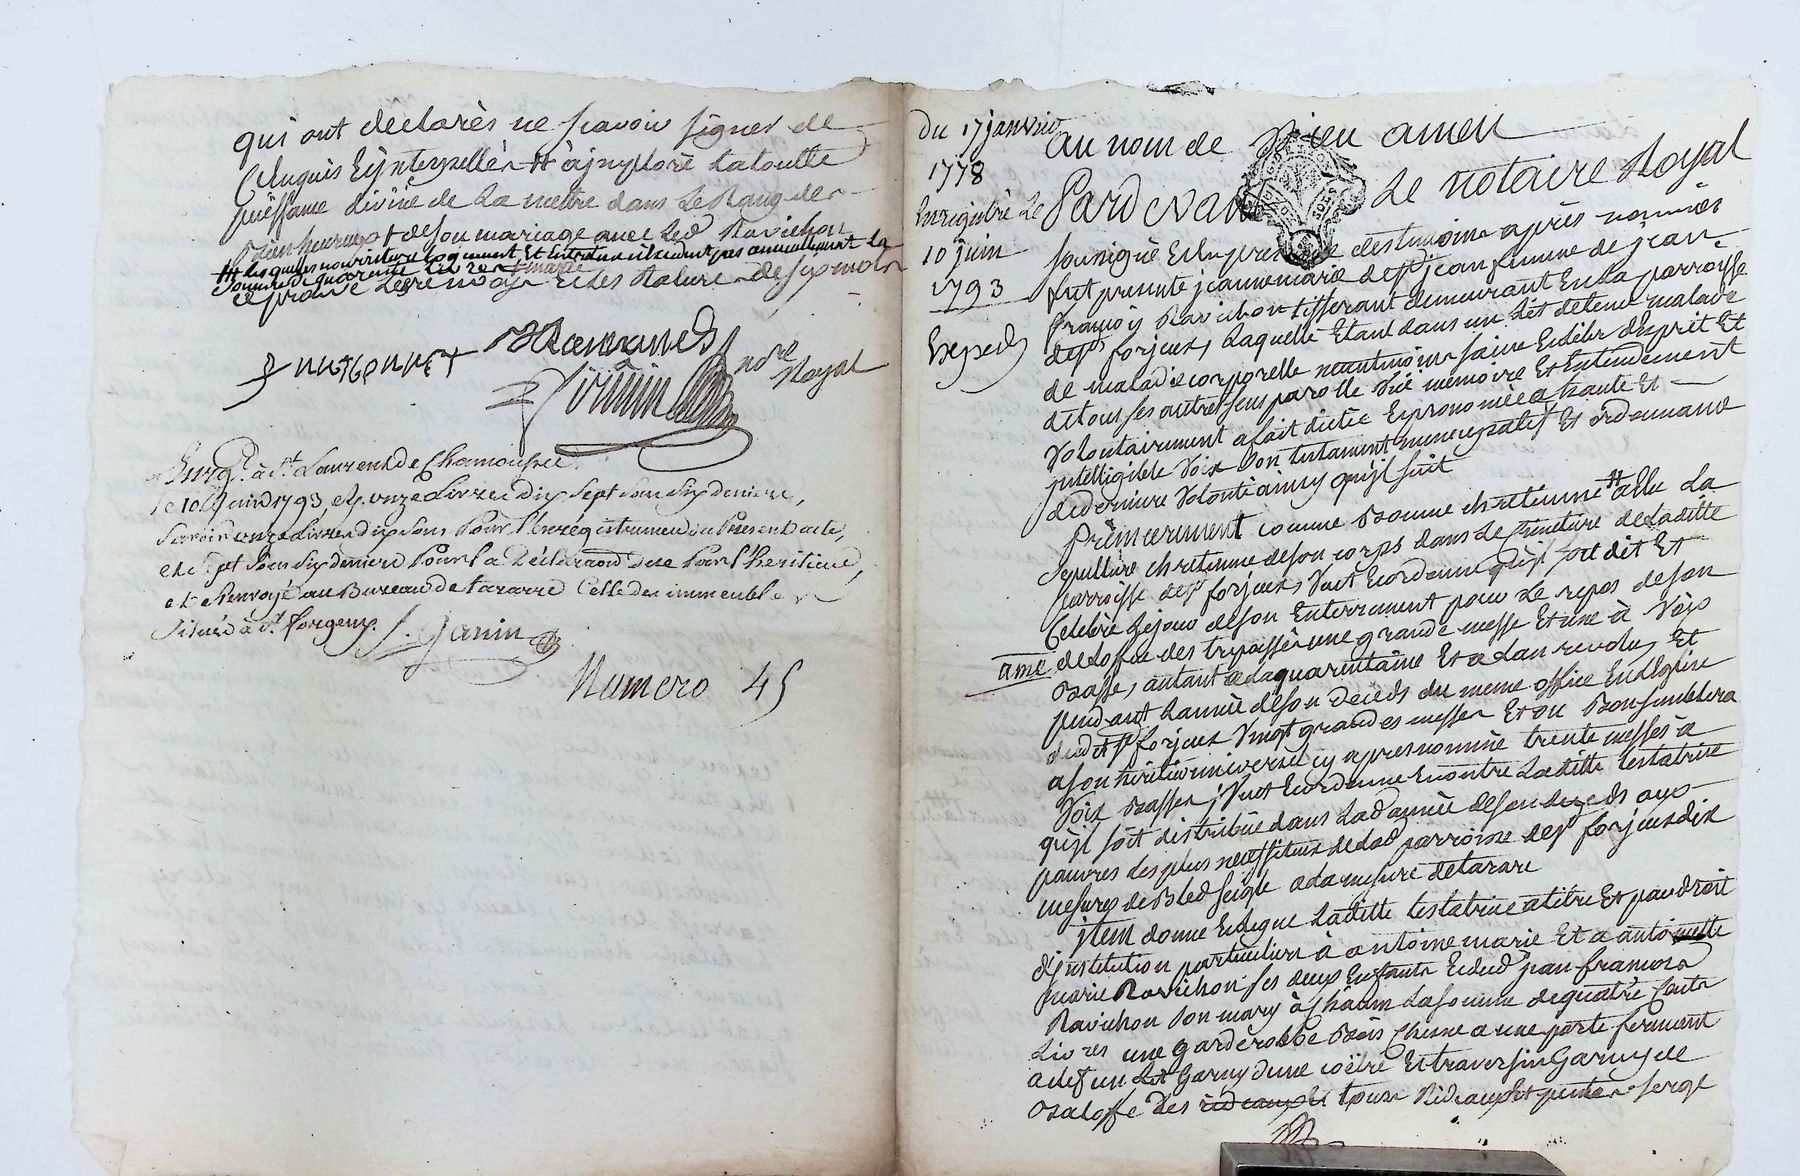 qui ont declarés ne scavoir signer de
ce enquis et interpellés # a imploré la toutte
puissance divine de la mettre dans le rang des
bienheureux + de son mariage avec led Ravichon
# lesquels nourriture logement et entretien
somme de quarante livres
nore
Royal
Enrgé à st Laurent de Chamousset
le 10 Juin 1793 et onze Livres dix sept sous six deniers,
savoir onze Livres dix sous Pour l'Enregistrement du Present acte,
et sept sous six deniers Pour la Déclaraon Pour l'heritiere,
et Renvoyé au Bureau de tararre Celle des immeubles
situés à st forgeux. J. Janin
Numero 45
du 17 janvier
1778
Enrigistré Le
10 juin
1793
Exped
au nom de Dieu amen
Pardevant Le notaire Royal
sousigné Et en presence des temoins après nommés
fut presente jeanne marie femme de jean
françois Ravichon tisserant demeurant En la parroisse
de st forjeux, Laquelle Etant dans un Lit detenue malade
de maladie corporelle neantmoins saine Et libre d'esprit Et
de tous ses autres sens parolle vüe memoire Et Entendement
volontairement a fait dictée Et prononcée a haute Et
intelligible voix son testament nuncupatif Et ordonnance
de derniere volonté ainsy qu'jl suit
Primierement comme Bonne chretienne # Elle La
sepulture chretienne de son corps dans Le Cimetiere de Laditte
parroisse de st forjeux, veut Et ordonne qu'jl soit dit Et
Celebré Le jour de son Enterrement pour Le repos de son
ame de L'office des trepassés une grande messe Et une à voix
Basse, autant a La quarantaine Et a L'an revolu, Et
pendant L'année de son deceds du meme office En L'Eglise
dud st forjeux vingt grandes messes Et ou Bon semblera
a son heritier universel cy apres nommé trente messes à
voix Basses; veut Et ordonne En outre Laditte testatrice
qu'jl soit distribüé dans Lad année de son deceds aux
pauvres des plus necessiteux de lad parroisse de st forjeux dix
mesures de Bled seigle a La mesure de tarare
jtem donne Et Legue Laditte testatrice a titre Et par droit
d'jnstitution particuliere à antoine marie Et a antoinette
marie Ravichon ses deux Enfants Et dud jean françois
Ravichon son mary à chacun La somme de quatre Cents
Livres une garderobbe Bois chesne a une porte fermant
a clef un Lit Garny d'une coëtre Et traversin Garnys de
Baloffe des rideaux Et